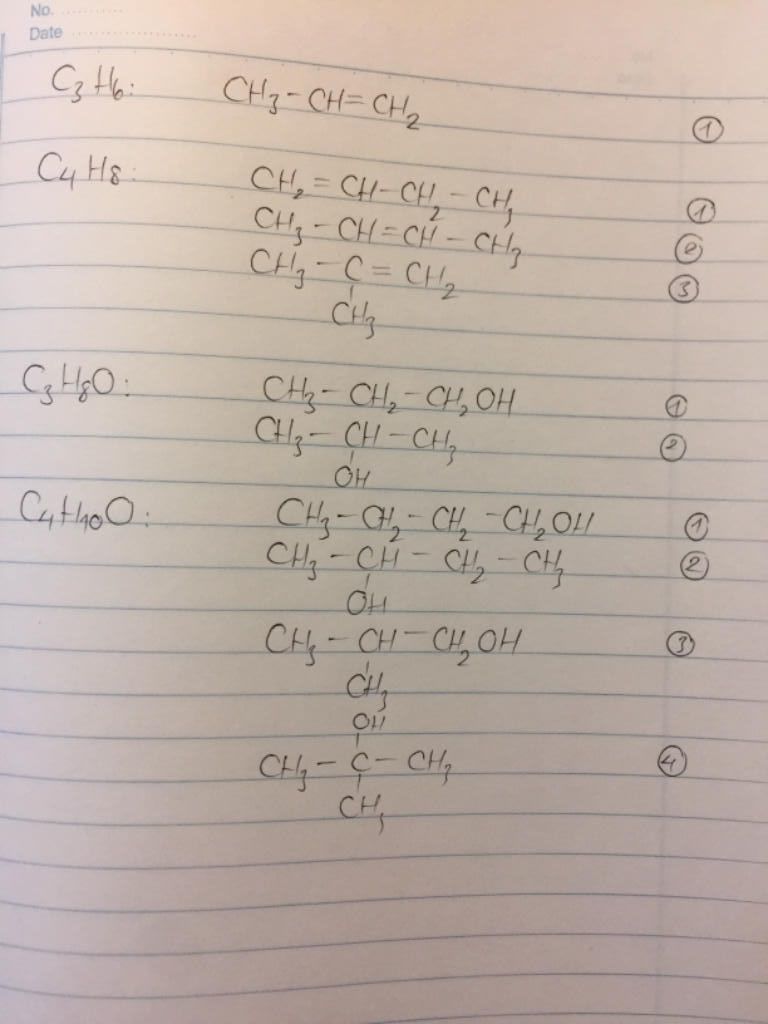 No.
Date
C3H6: CH3-CH=CH2 ①
C4H8: CH2=CH-CH2-CH3 ①
CH3-CH=CH-CH3 ②
CH3-C=CH2 ③
CH3
C3H8O: CH3-CH2-CH2OH ①
CH3-CH-CH3 ②
OH
C4H10O: CH3-CH2-CH2-CH2OH ①
CH3-CH-CH2-CH3 ②
OH
CH3-CH-CH2OH ③
CH3
OH
CH3-C-CH3 ④
CH3